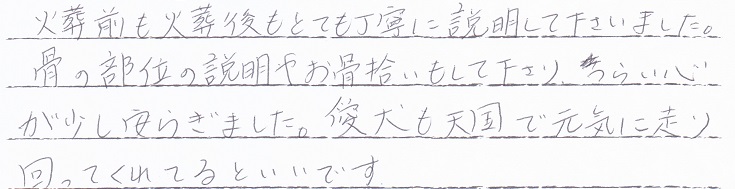 火葬前も火葬後もとても丁寧に説明して下さいました。
骨の部位の説明やお骨拾いもして下さり、つらい心
が少し安らぎました。愛犬も天国で元気に走り
回ってくれてるといいです